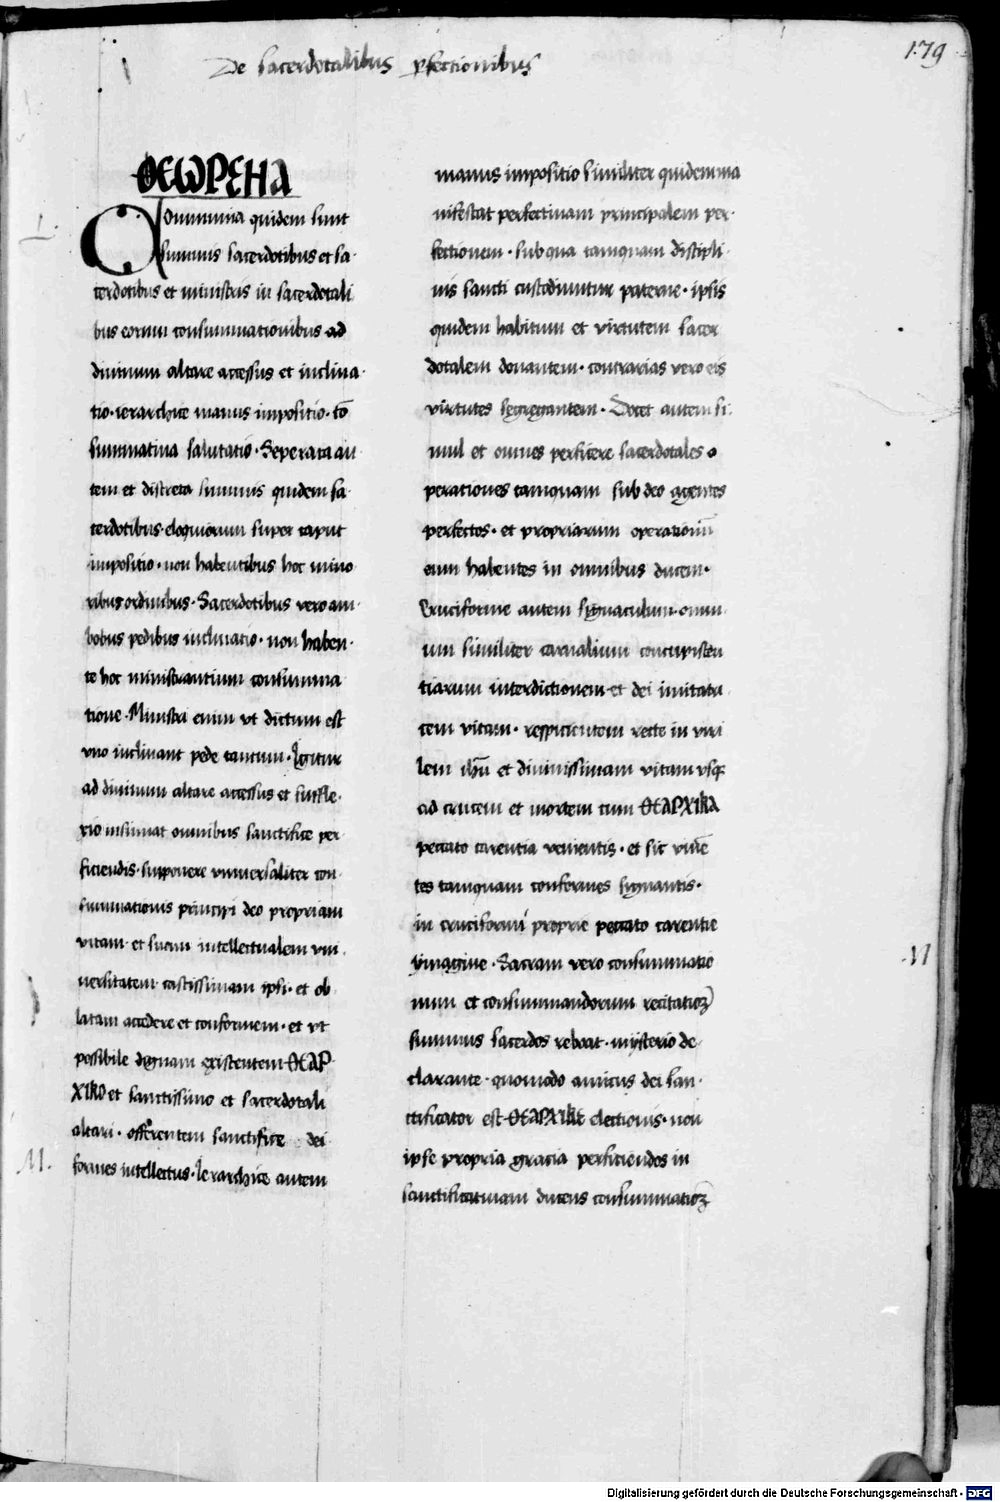 De sacerdotalibus pfectionibus
179
ΘΕωΡΕΗΑ
Qommunia quidem sunt
summis sacerdotibus et sa·
cerdotibus et ministris in sacerdotali
bus eorum consummationibus ad
diuinum altare accessus et inclina·
tio· ierarchice manus impositio· cō
summatiua salutatio· Seperata au
tem et discreta summis quidem sa·
cerdotibus· eloquiorum super caput
impositio· non habentibus hoc mino
ribus ordinibus· Sacerdotibus vero am·
bobus pedibus inclinatio· non haben·
te hoc ministrantium consumma
tione· Ministri enim vt dictum est
vno inclinant pede tantum· Igitur
ad diuinum altare accessus et suffle·
xio insinuat omnibus sanctifice per
ficiendis· supponere vniuersaliter con·
summationis principi deo propriam
vitam· et suam intellectualem vni·
uersitatem castissimam ipsi· et ob
latam accedere et conformem· et vt
possibile dignam existentem ΘΕΑΡ
ΧΙΚΟ et sanctissimo et sacerdotali
altari· offerentem sanctifice dei
formes intellectus· Ierarchice autem
manus impositio similiter quidem ma
nifestat perfectiuam principalem per·
fectionem· sub qua tamquam discipli·
nis sancti custodiuntur paterne· ipsis
quidem habitum et virtutem sacer
dotalem donantem· contrarias vero eis
virtutes segregantem· Docet autem si·
mul et omnes perficere sacerdotales o
perationes tamquam sub deo agentes
perfectos· et propriarum operationū
eum habentes in omnibus ducem·
Cruciforme autem signaculum· omni·
um similiter carnalium concupiscen
tiarum interdictionem et dei imitatri·
cem vitam· respicientem recte in viri
lem ihū et diuinissimam vitam vsq
ad crucem et mortem cum ΘΕΑΡΧΙΚΑ
peccato carentia venientis· et sic viuē
tes tamquam conformes signantis·
in cruciformi proprie peccato carentie
ymagine· Sacram vero consummatio
num et consummandorum recitatioꝫ
summus sacerdos reboat· mysterio de·
clarante· quomodo amicus dei san·
ctificator est ΘΕΑΡΧΙΚΕ electionis· non
ipse propria gracia perficiendos in
sanctificatiuam ducens consummatioꝫ
M.
Digitalisierung gefördert durch die Deutsche Forschungsgemeinschaft · DFG